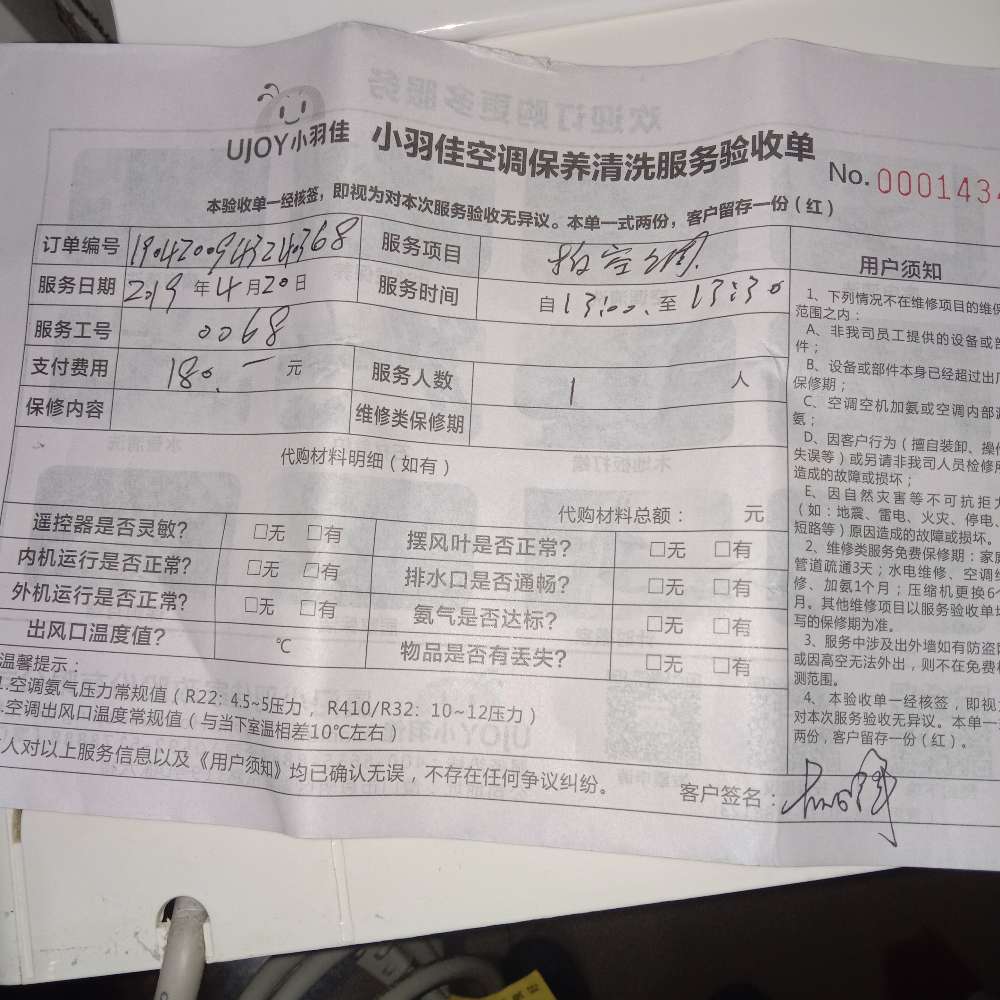 UJOY小羽佳
小羽佳空调保养清洗服务验收单
No.000143
本验收单一经核签，即视为对本次服务验收无异议。本单一式两份，客户留存一份（红）
订单编号 服务项目
服务日期 2019 年 4 月 20 日 服务时间 自 13:00 至 13:30
服务工号 0068
支付费用 180.一 元 服务人数 1 人
保修内容 维修类保修期
代购材料明细（如有）
代购材料总额： 元
遥控器是否灵敏? □无 □有 摆风叶是否正常? □无 □有
内机运行是否正常? □无 □有 排水口是否通畅? □无 □有
外机运行是否正常? □无 □有 氨气是否达标? □无 □有
出风口温度值? ℃ 物品是否有丢失? □无 □有
温馨提示：
1.空调氨气压力常规值（R22：4.5~5压力， R410/R32：10~12压力）
.空调出风口温度常规值（与当下室温相差10℃左右）
人对以上服务信息以及《用户须知》均已确认无误，不存在任何争议纠纷。
客户签名：
用户须知
1、下列情况不在维修项目的维保
范围之内：
A、非我司员工提供的设备或部
件；
B、设备或部件本身已经超过出厂
保修期；
C、空调空机加氨或空调内部漏
氨；
D、因客户行为（擅自装卸、操作
失误等）或另请非我司人员检修所
造成的故障或损坏；
E、因自然灾害等不可抗拒力
（如：地震、雷电、火灾、停电、
短路等）原因造成的故障或损坏。
2、维修类服务免费保修期：家庭
管道疏通3天；水电维修、空调维
修、加氨1个月；压缩机更换6个
月。其他维修项目以服务验收单填
写的保修期为准。
3、服务中涉及出外墙如有防盗网
或因高空无法外出，则不在免费检
测范围。
4、本验收单一经核签，即视为
对本次服务验收无异议。本单一式
两份，客户留存一份（红）。